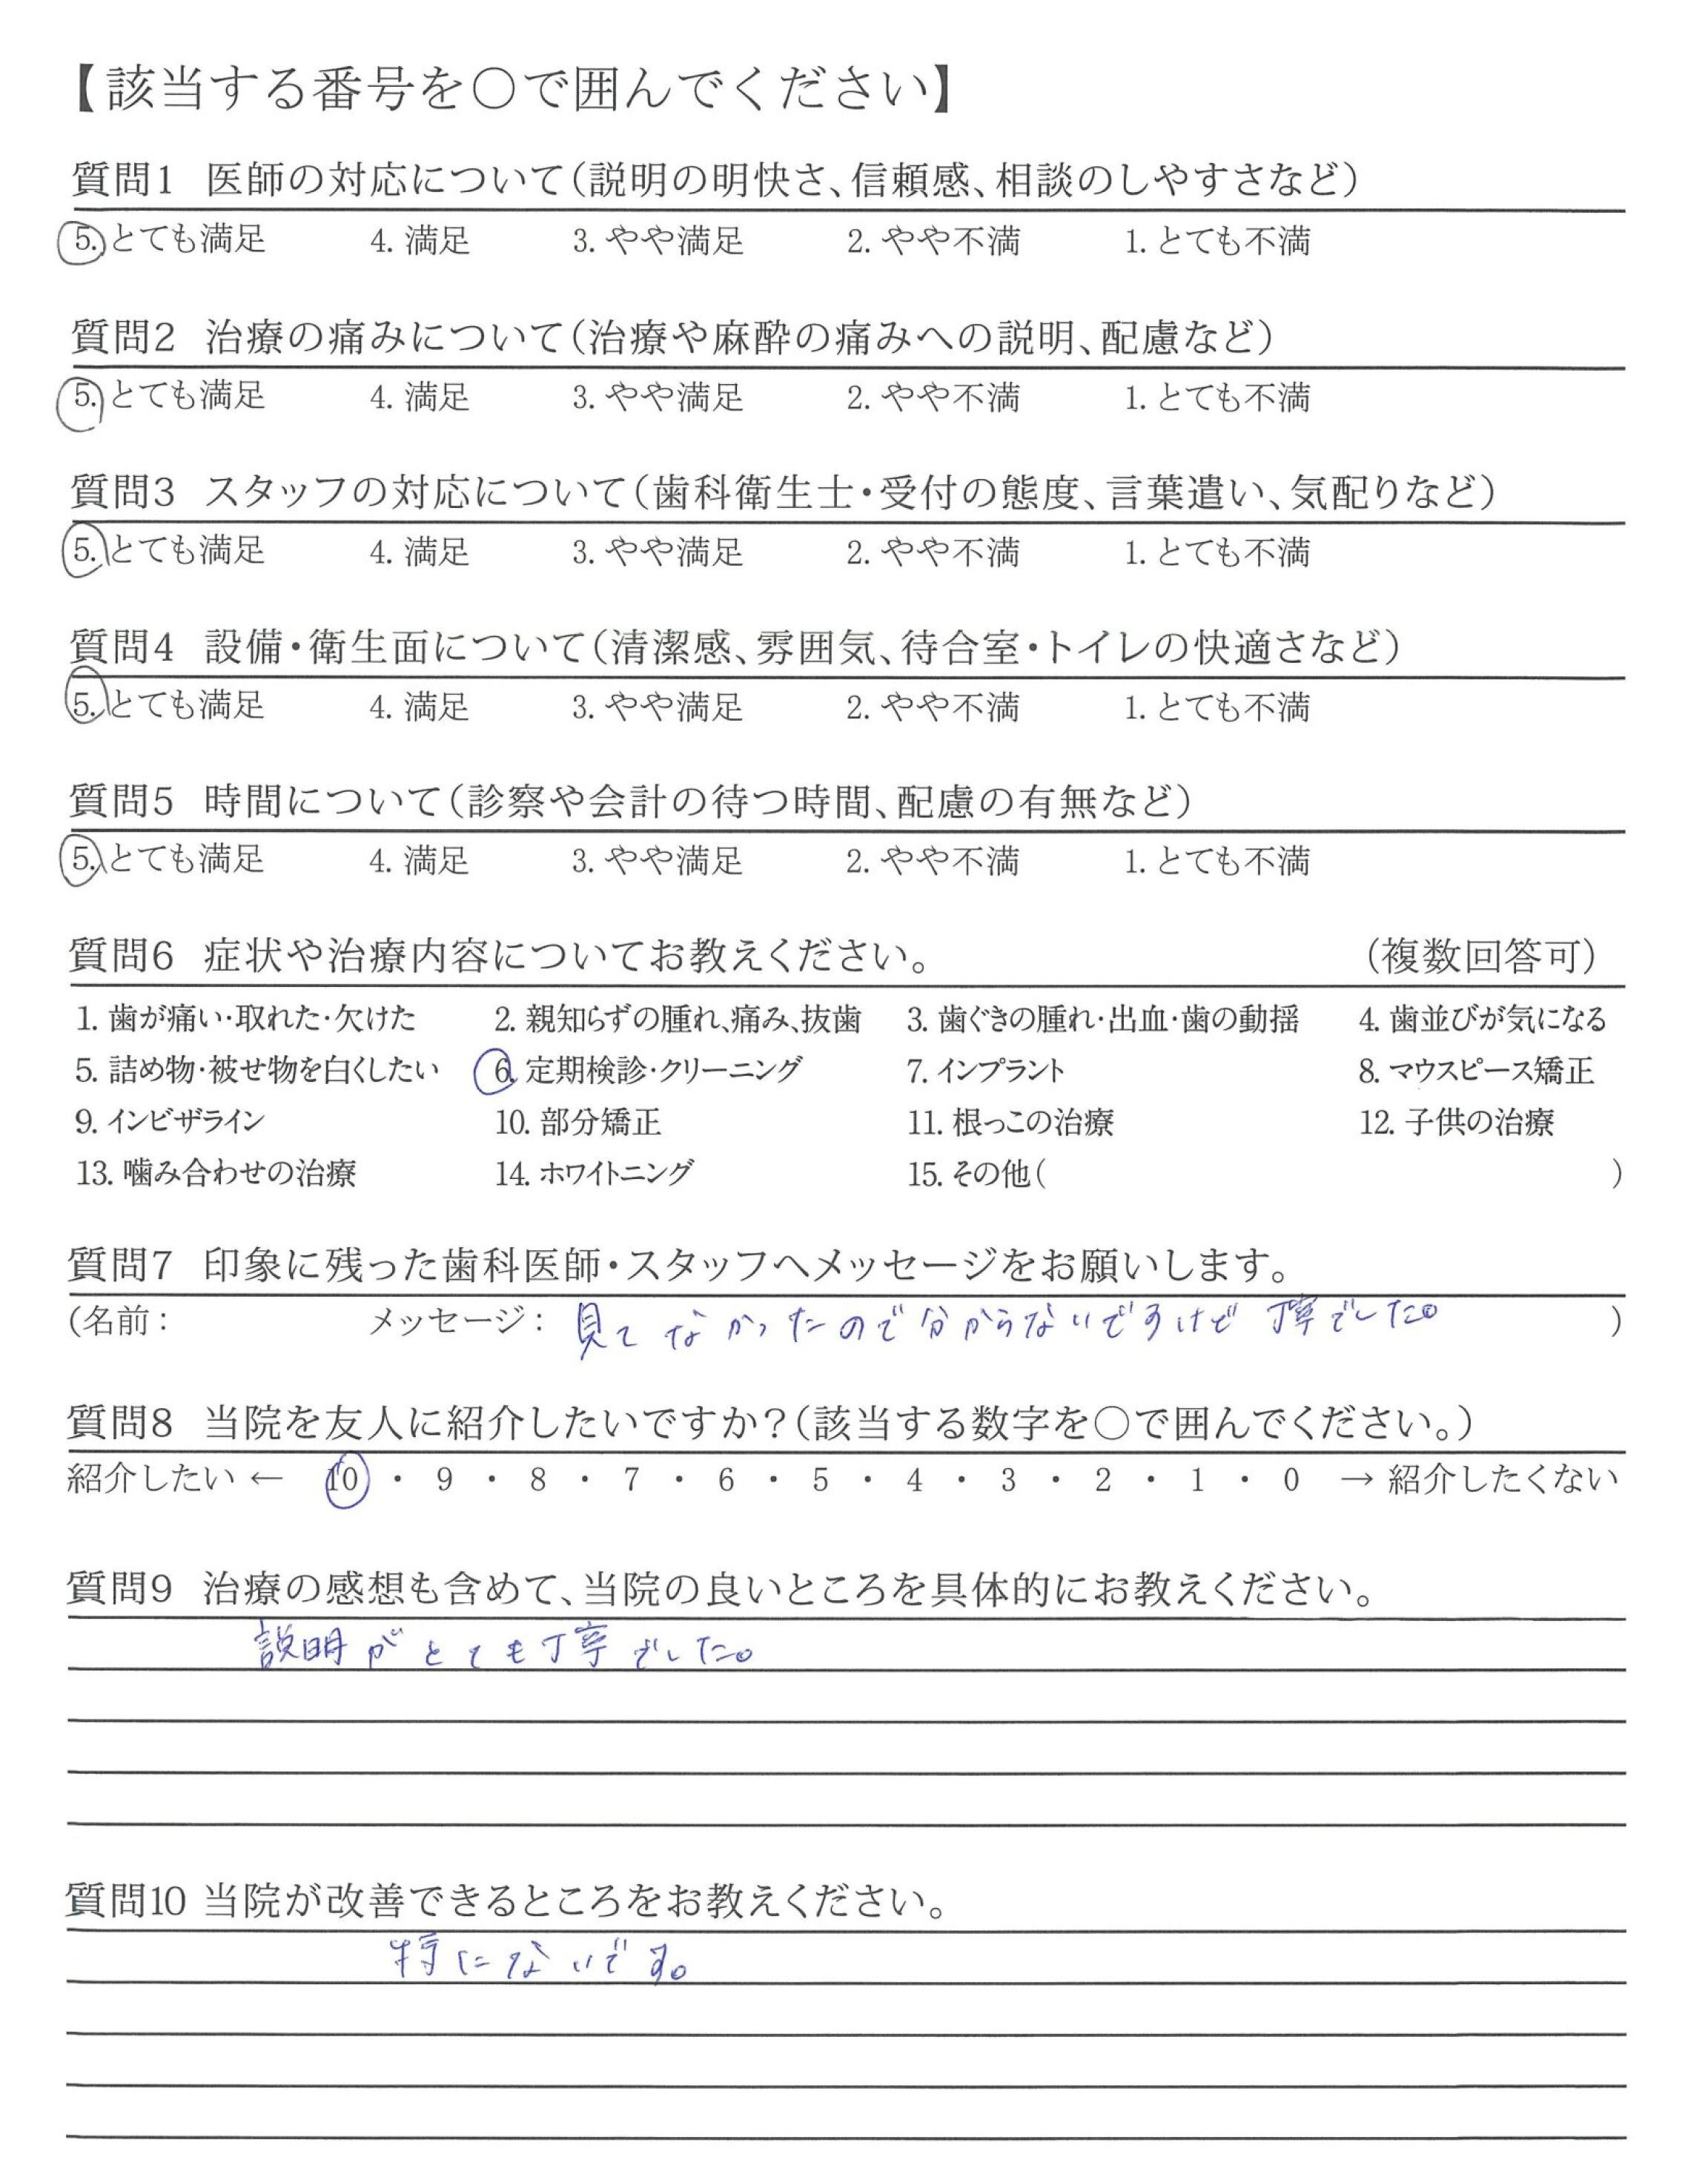 【該当する番号を○で囲んでください】
質問1 医師の対応について(説明の明快さ、信頼感、相談のしやすさなど)
5. とても満足 4. 満足 3. やや満足 2. やや不満 1. とても不満
質問2 治療の痛みについて(治療や麻酔の痛みへの説明、配慮など)
5. とても満足 4. 満足 3. やや満足 2. やや不満 1. とても不満
質問3 スタッフの対応について(歯科衛生士・受付の態度、言葉遣い、気配りなど)
5. とても満足 4. 満足 3. やや満足 2. やや不満 1. とても不満
質問4 設備・衛生面について(清潔感、雰囲気、待合室・トイレの快適さなど)
5. とても満足 4. 満足 3. やや満足 2. やや不満 1. とても不満
質問5 時間について(診察や会計の待つ時間、配慮の有無など)
5. とても満足 4. 満足 3. やや満足 2. やや不満 1. とても不満
質問6 症状や治療内容についてお教えください。 (複数回答可)
1. 歯が痛い・取れた・欠けた 2. 親知らずの腫れ、痛み、抜歯 3. 歯ぐきの腫れ・出血・歯の動揺 4. 歯並びが気になる
5. 詰め物・被せ物を白くしたい 6. 定期検診・クリーニング 7. インプラント 8. マウスピース矯正
9. インビザライン 10. 部分矯正 11. 根っこの治療 12. 子供の治療
13. 噛み合わせの治療 14. ホワイトニング 15. その他( )
質問7 印象に残った歯科医師・スタッフへメッセージをお願いします。
(名前: メッセージ: 見てなかったので分からないですけど 丁寧でした。 )
質問8 当院を友人に紹介したいですか?(該当する数字を○で囲んでください。)
紹介したい ← 10 ・ 9 ・ 8 ・ 7 ・ 6 ・ 5 ・ 4 ・ 3 ・ 2 ・ 1 ・ 0 → 紹介したくない
質問9 治療の感想も含めて、当院の良いところを具体的にお教えください。
説明がとても丁寧でした。
質問10 当院が改善できるところをお教えください。
特にないです。